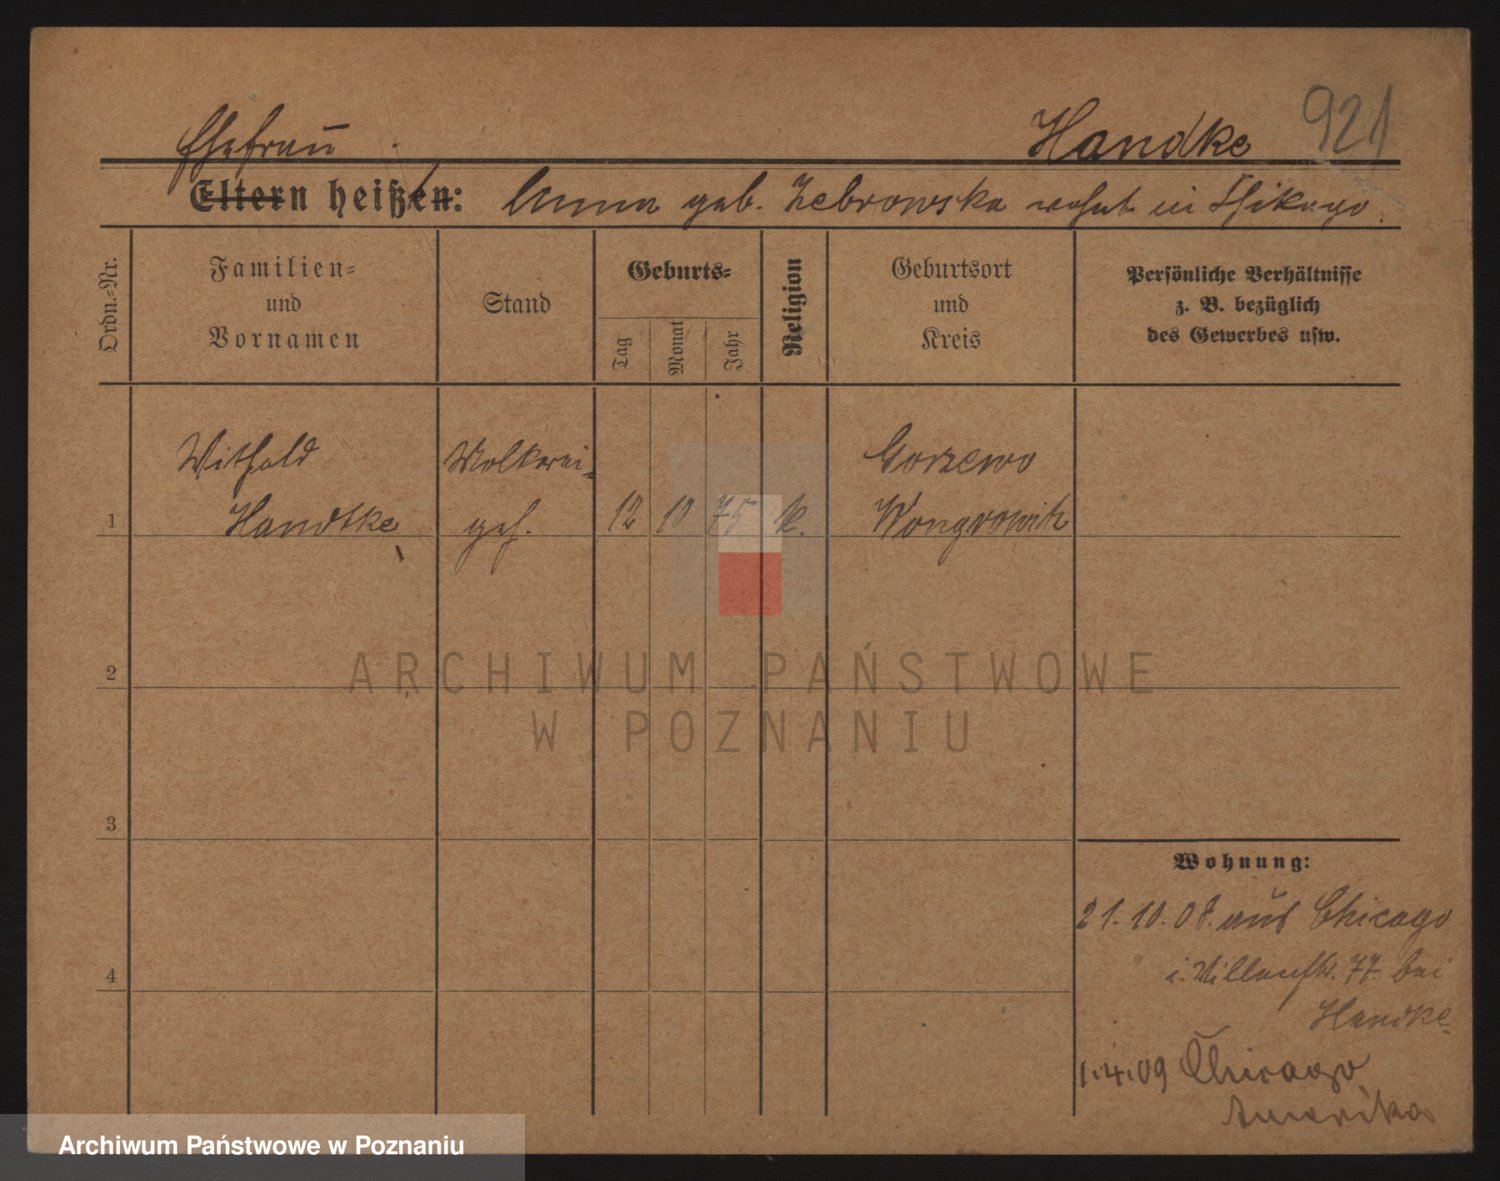 Handke 921
Ehefrau
Eltern heißen: Anna geb. Zebrowska wohnt in Chikago.
Ordn.-Nr.
Familien-
und
Vornamen
Stand
Geburts-
Tag
Monat
Jahr
Religion
Geburtsort
und
Kreis
Persönliche Verhältnisse
z. B. bezüglich
des Gewerbes usw.
Withold Molkerei- Gorzewo
1 Handtke geh. 12 10 75 k. Wongrowitz
2
ARCHIWUM PAŃSTWOWE
W POZNANIU
3
Wohnung:
21.10.08. aus Chicago
4
i. 77. bei
Handke.
1.4.09 Chicago
Amerika
Archiwum Państwowe w Poznaniu